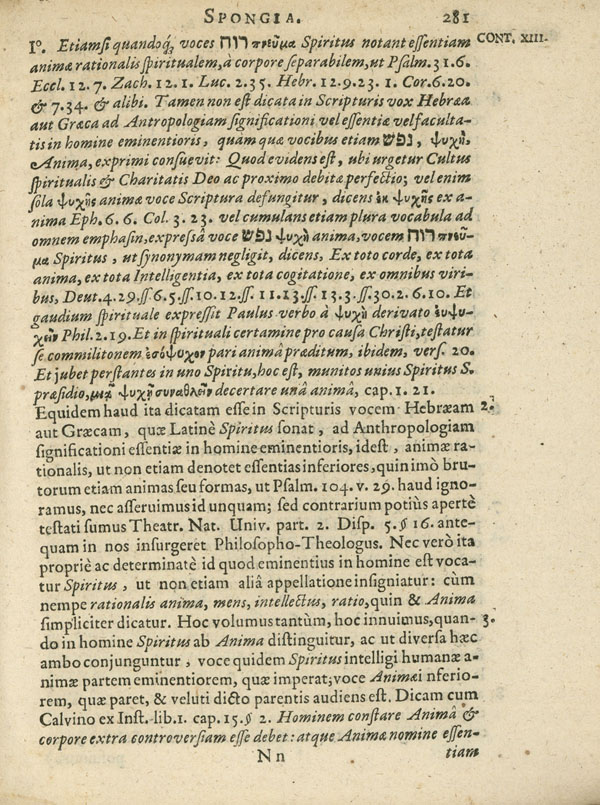 SPONGIA. 281
I°. Etiamsi quandoq́; voces רוח πνεῦμα Spiritus notant essentiam CONT. XIII.
animæ rationalis spiritualem, à corpore separabilem, ut Psalm. 31.6.
Eccl. 12.7. Zach. 12.1. Luc. 2.35. Hebr. 12.9.23. 1. Cor. 6.20.
& 7.34. & alibi. Tamen non est dicata in Scripturis vox Hebræa
aut Græca ad Anthropologiam significationi vel essentiæ vel faculta-
tis in homine eminentioris, quam quæ vocibus etiam נפש, ψυχὴ,
Anima, exprimi consuevit: Quod evidens est, ubi urgetur Cultus
spiritualis & Charitatis Deo ac proximo debitæ perfectio; vel enim
sola ψυχῆς animæ voce Scriptura defungitur, dicens ἐκ ψυχῆς ex a-
nima Eph. 6.6. Col. 3.23. vel cumulans etiam plura vocabula ad
omnem emphasin, expressâ voce נפש ψυχὴ anima, vocem רוח πνεῦ-
μα Spiritus, ut synonymam negligit, dicens, Ex toto corde, ex tota
anima, ex tota Intelligentia, ex tota cogitatione, ex omnibus viri-
bus, Deut. 4.29. ſſ. 6.5. ſſ. 10.12. ſſ. 11.13. ſſ. 13.3. ſſ. 30.2.6.10. Et
gaudium spirituale expressit Paulus verbo à ψυχὴ derivato ἐυψυ-
χεῖν Phil. 2.19. Et in spirituali certamine pro causa Christi, testatur
se commilitonem ἰσόψυχον pari animâ præditum, ibidem, vers. 20.
Et jubet perstantes in uno Spiritu, hoc est, munitos unius Spiritus S.
præsidio, μιᾷ ψυχῇ συναθλεῖν decertare unâ animâ, cap. 1. 21.
Equidem haud ita dicatam esse in Scripturis vocem Hebræam 2.
aut Græcam, quæ Latinè Spiritus sonat, ad Anthropologiam
significationi essentiæ in homine eminentioris, id est, animæ ra-
tionalis, ut non etiam denotet essentias inferiores, quin imò bru-
torum etiam animas seu formas, ut Psalm. 104. v. 29. haud igno-
ramus, nec asseruimus id unquam; sed contrarium potiùs apertè
testati sumus Theatr. Nat. Univ. part. 2. Disp. 5. § 16. ante-
quam in nos insurgeret Philosopho-Theologus. Nec verò ita
propriè ac determinatè id quod eminentius in homine est voca-
tur Spiritus, ut non etiam aliâ appellatione insigniatur: cùm
nempe rationalis anima, mens, intellectus, ratio, quin & Anima
simpliciter dicatur. Hoc volumus tantùm, hoc innuimus, quan- 3.
do in homine Spiritus ab Anima distinguitur, ac ut diversa hæc
ambo conjunguntur, voce quidem Spiritus intelligi humanæ a-
nimæ partem eminentiorem, quæ imperat; voce Animæ inferio-
rem, quæ paret, & veluti dicto parentis audiens est. Dicam cum
Calvino ex Inst. lib. 1. cap. 15. § 2. Hominem constare Animâ &
corpore extra controversiam esse debet: atque Animæ nomine essen-
Nn tiam